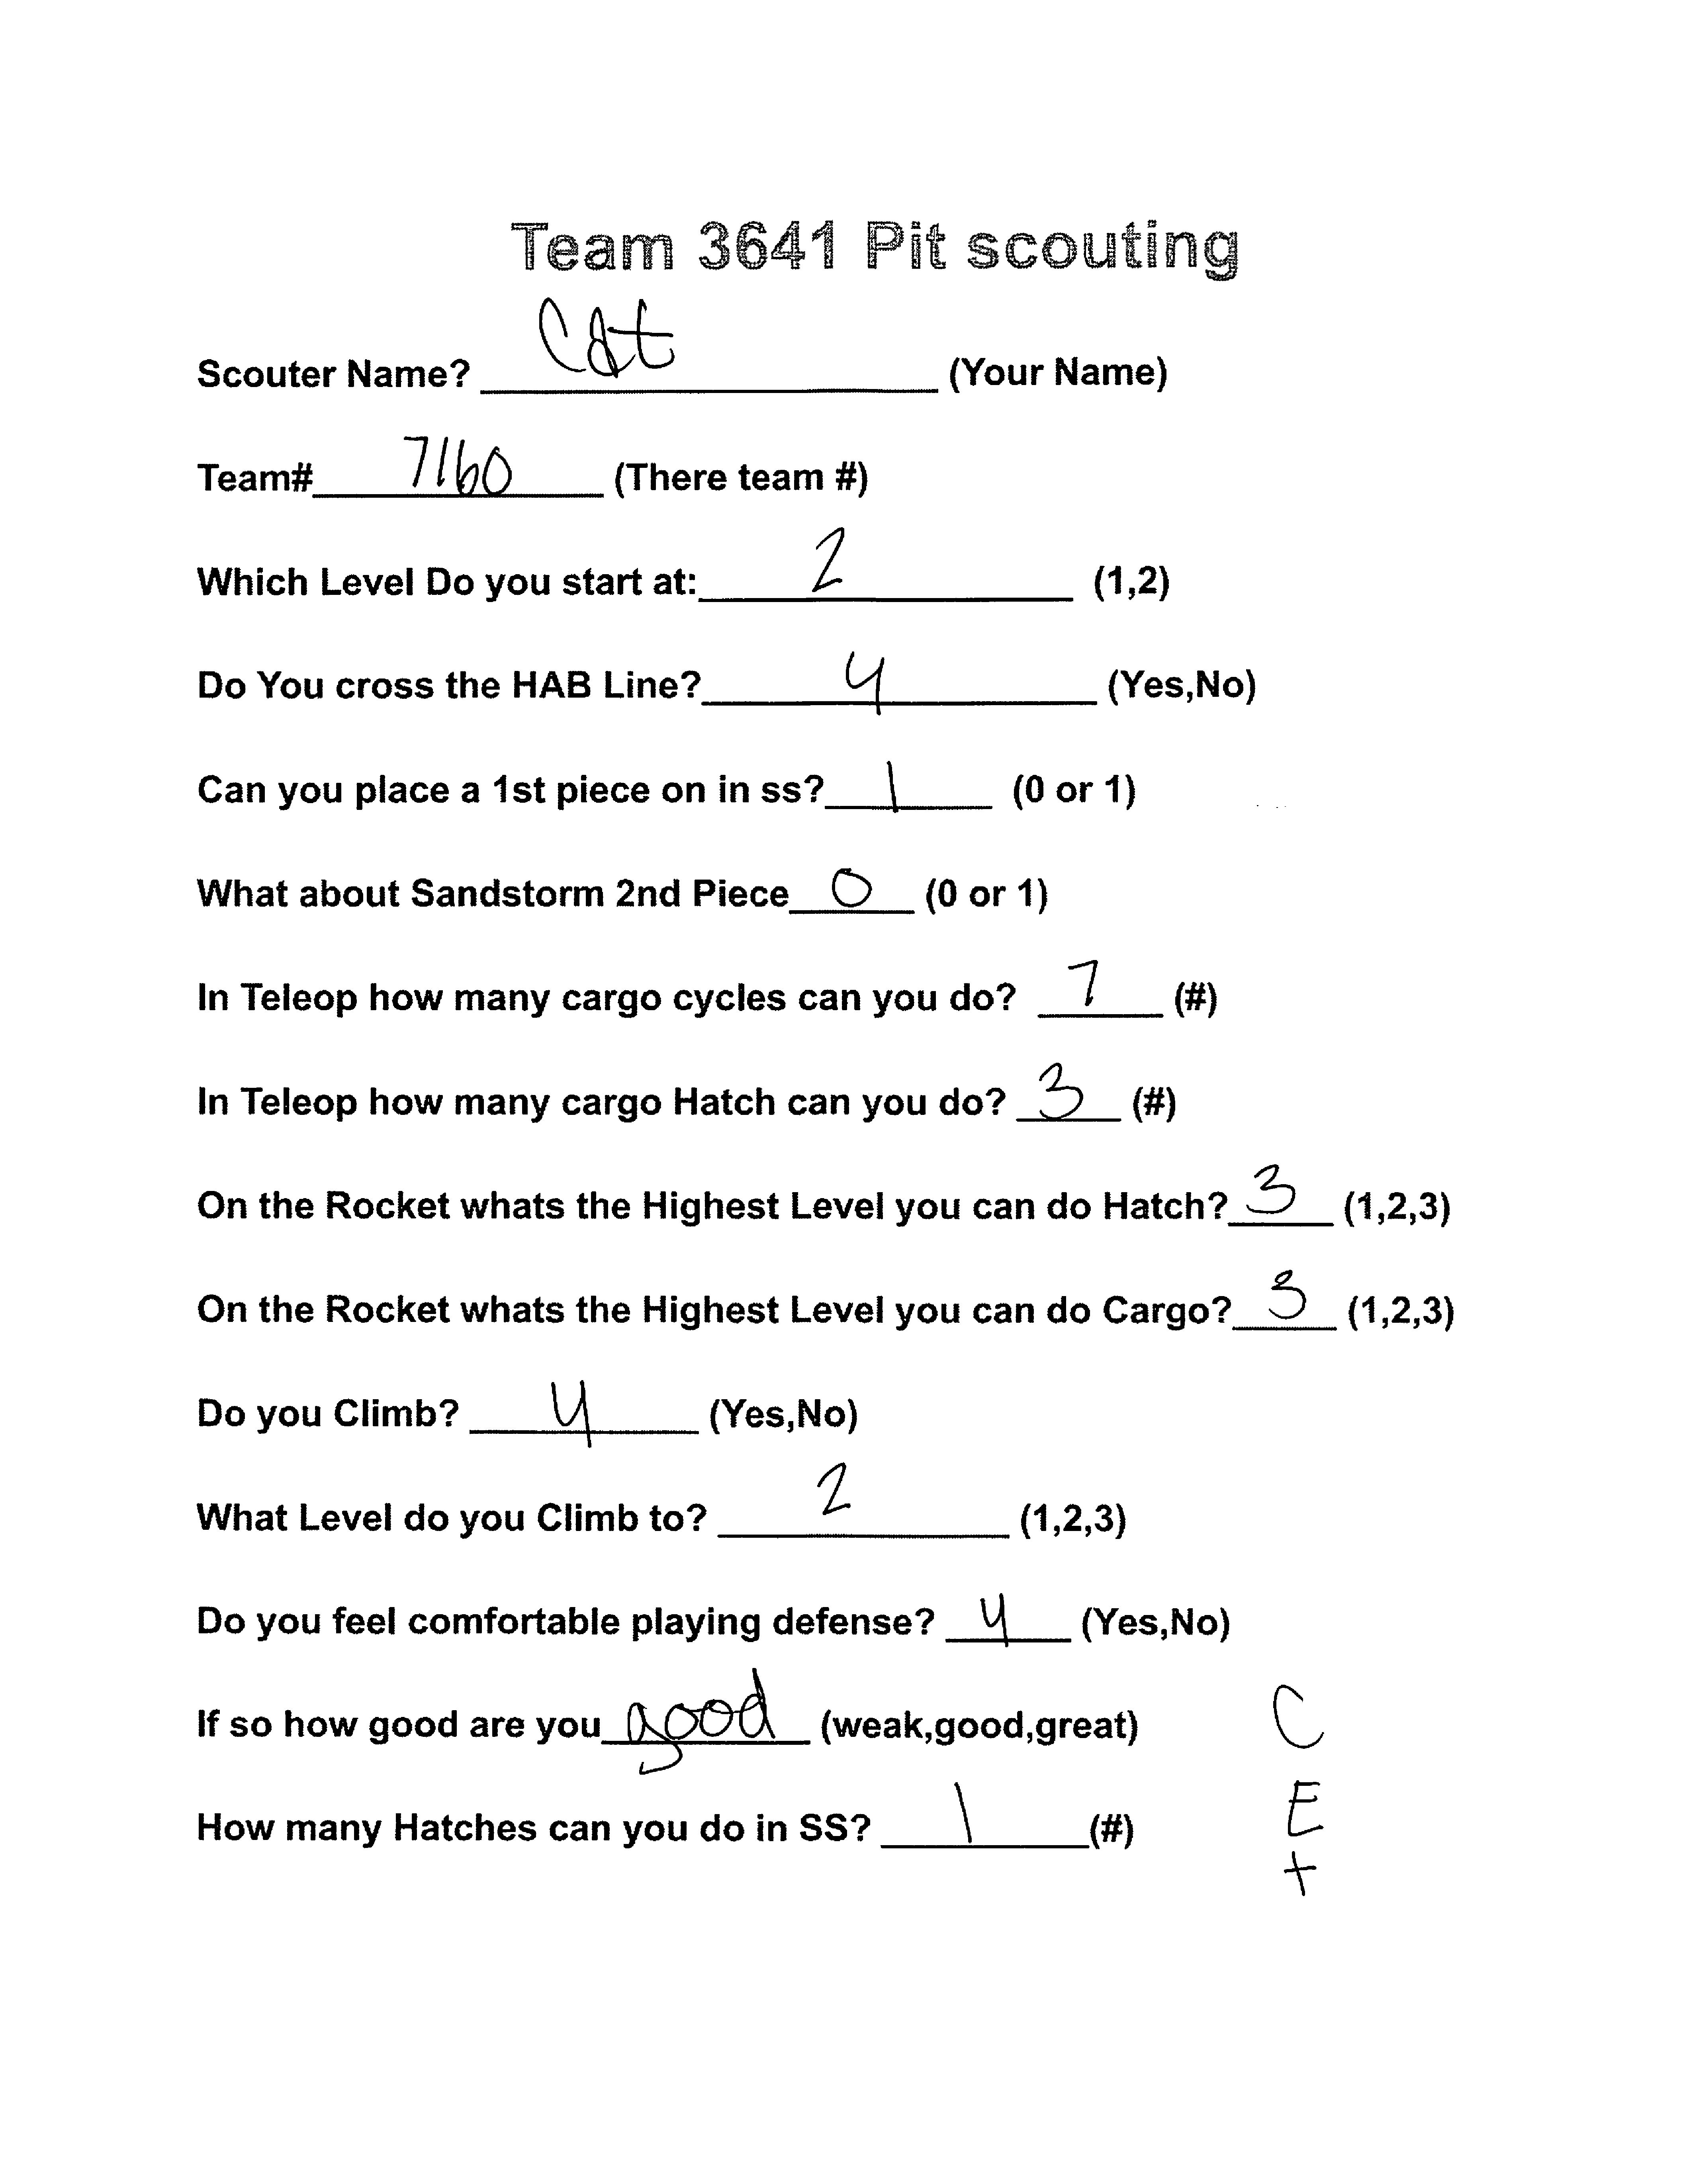 Team 3641 Pit scouting
Scouter Name? Cat (Your Name)
Team# 7160 (There team #)
Which Level Do you start at: 2 (1,2)
Do You cross the HAB Line? y (Yes,No)
Can you place a 1st piece on in ss? 1 (0 or 1)
What about Sandstorm 2nd Piece 0 (0 or 1)
In Teleop how many cargo cycles can you do? 7 (#)
In Teleop how many cargo Hatch can you do? 3 (#)
On the Rocket whats the Highest Level you can do Hatch? 3 (1,2,3)
On the Rocket whats the Highest Level you can do Cargo? 3 (1,2,3)
Do you Climb? y (Yes,No)
What Level do you Climb to? 2 (1,2,3)
Do you feel comfortable playing defense? y (Yes,No)
If so how good are you good (weak,good,great)
C
How many Hatches can you do in SS? 1 (#)
E
+